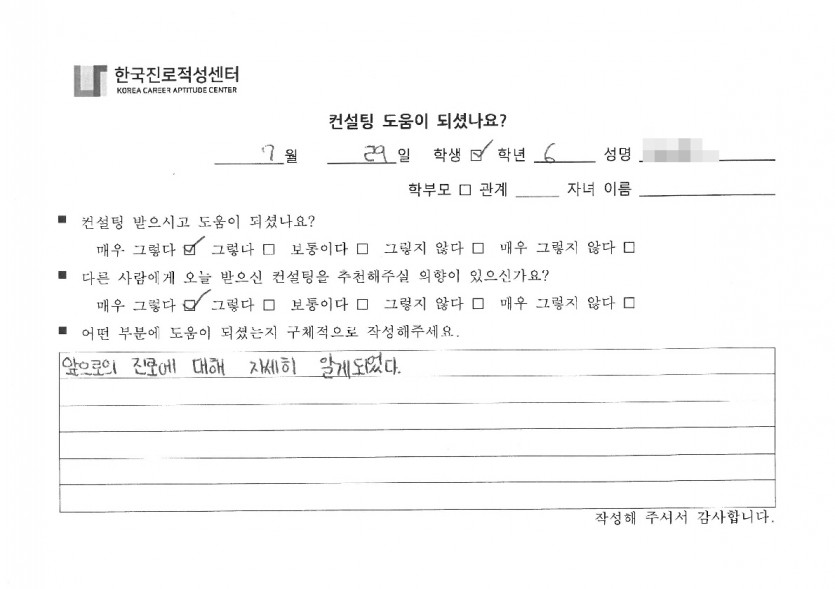 한국진로적성센터
KOREA CAREER APTITUDE CENTER
컨설팅 도움이 되셨나요?
7 월 29 일 학생 ☑ 학년 6 성명
학부모 □ 관계 자녀 이름
■ 컨설팅 받으시고 도움이 되셨나요?
매우 그렇다 ☑ 그렇다 □ 보통이다 □ 그렇지 않다 □ 매우 그렇지 않다 □
■ 다른 사람에게 오늘 받으신 컨설팅을 추천해주실 의향이 있으신가요?
매우 그렇다 ☑ 그렇다 □ 보통이다 □ 그렇지 않다 □ 매우 그렇지 않다 □
■ 어떤 부분에 도움이 되셨는지 구체적으로 작성해주세요.
앞으로의 진로에 대해 자세히 알게되었다.
작성해 주셔서 감사합니다.